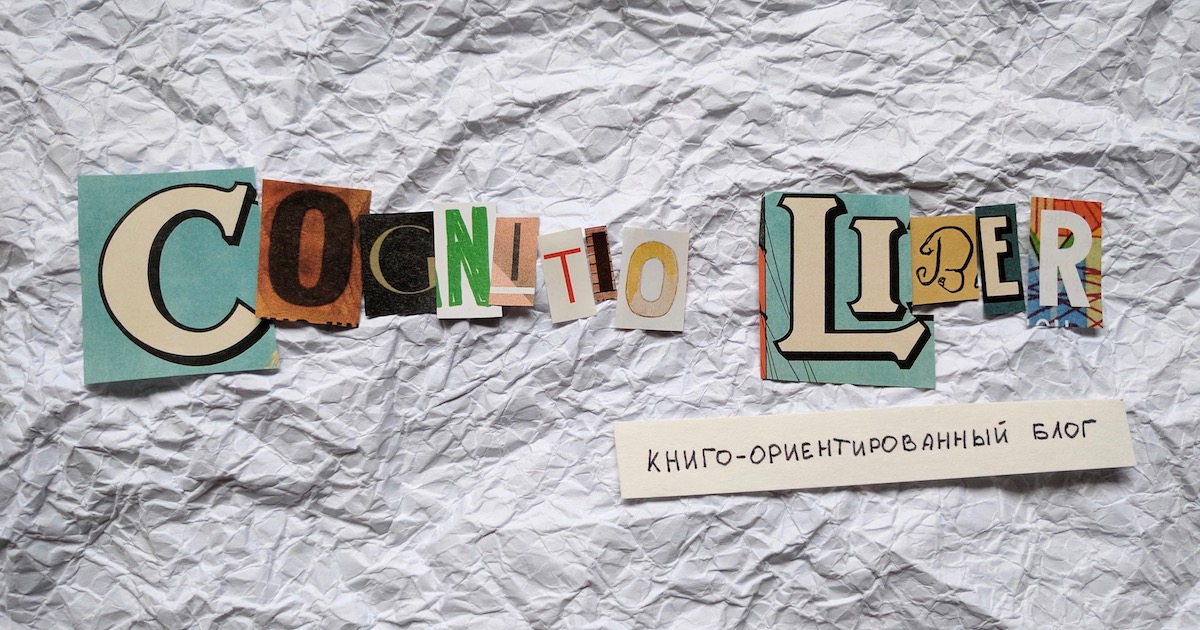 COGNITIO LIBER
КНИГО-ОРИЕНТИРОВАННЫЙ БЛОГ